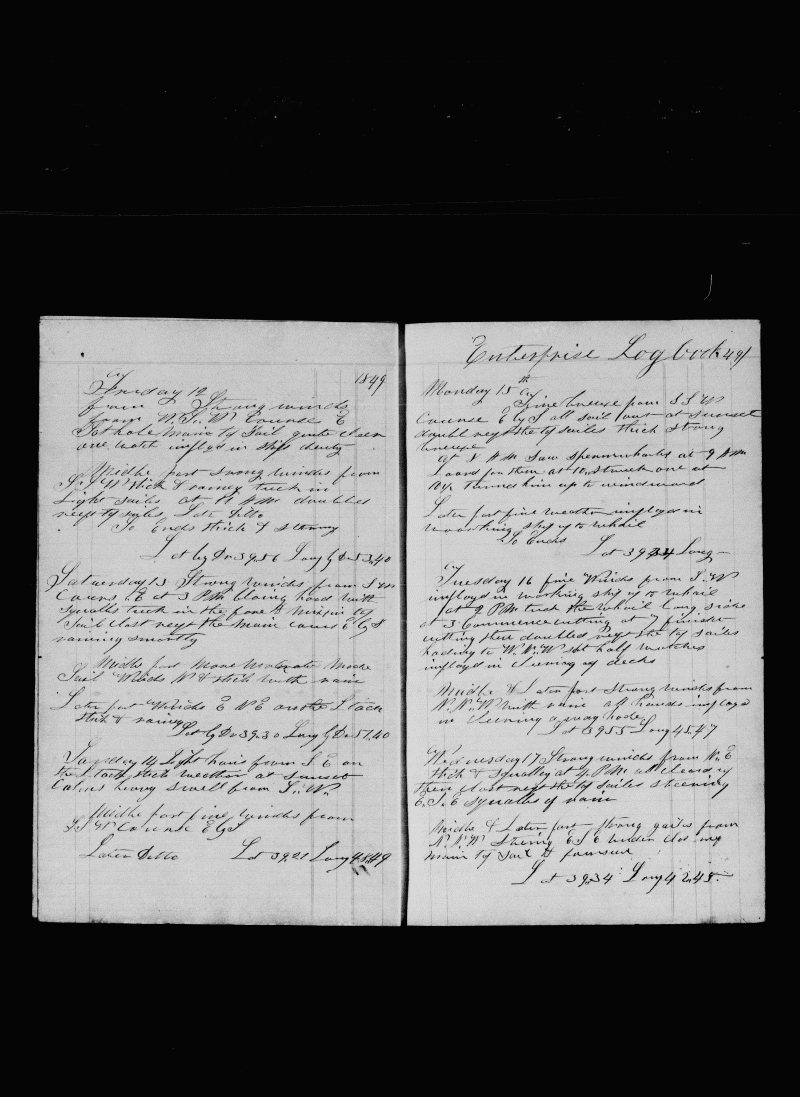 1849
Friday 12
from Strong winds
from W.S.W Course E
Set hole main ty Sail quite clear
one watch imployd in ships duty
Midle part Strong winds from
S.S.W thick & rainey took in
Light sails at 11 A.M. doubled
reeft ty sails Later Ditto
So Ends thick & strong
Lat by Dr 39.56 Long by Dr 53.40
Saturday 13 Strong winds from S.W
Cours E at 3 PM Closing hood with
Squalls took in the fore & mizin ty
Sail Clost reeft the main cours E by S
raining smartly
Midle part more moderate made
Sail Winds N & thick with rain
Later part Winds E N E on the S tack
thick & rainey
Lat by Dr 39.30 Long by Dr 51.40
Sunday 14 Light hairs from S E on
the S tack thick weather at sunset
Calms heavy swell from S.W.
Midle part fine winds from
S.S.W Course E by S
Later Ditto Lat 39.21 Long 48.49
Enterprise Log book 49
Monday 15th
fine breese from S.S.W
Course E by S all sail out at sunset
doubl reeft the ty sailes thick strong
breese
at X AM Saw spermwhales at 9 AM
Loard for them at 10, Struck one at
10½ turned him up to windward
Later part fine weather imployd in
working ship to whail
So Ends Lat 39.34 Long —
Tuesday 16 fine Winds from S.W
imployd in working ship to whail
at 2 PM took the whail Long side
at 3 Commence cutting at 7 finishe
cutting then doubled reeft the ty sailes
heading to W.N.W Set half watches
imployd in cleening of decks
Midle & Later part Strong winds from
N.N.W with rain all hands imployd
in cleening away hode
Lat 39.55 Long 45.47
Wednesday 17 Strong winds from N.E
thick & squalley at 4 PM all cleard of
then clost reeft the ty sailes steering
E.S.E squalls of rain
Midle & Later part Strong gailes from
N.N.W Steering E S E under clos ref
main ty sail & foursail
Lat 39.34 Long 42.45